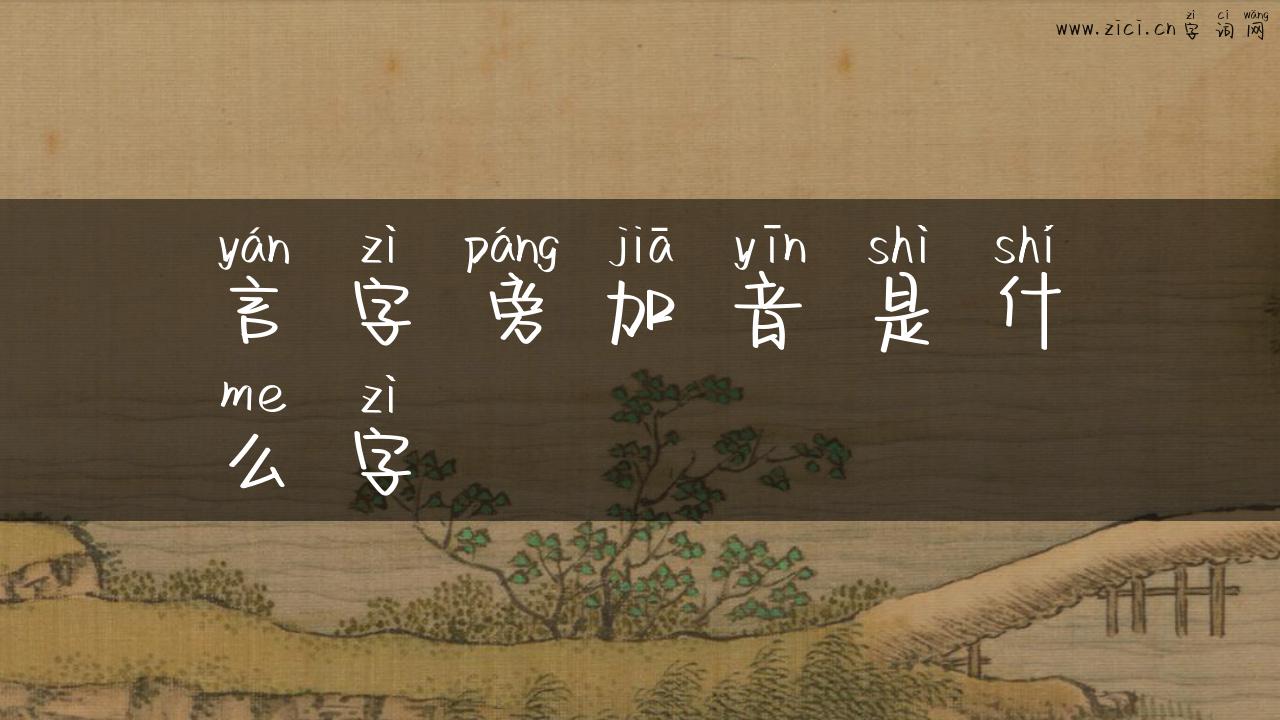 www.zici.cn zì cí wǎng
字词网
yán zì páng jiā yīn shì shí
言字旁加音是什
me zì
么字